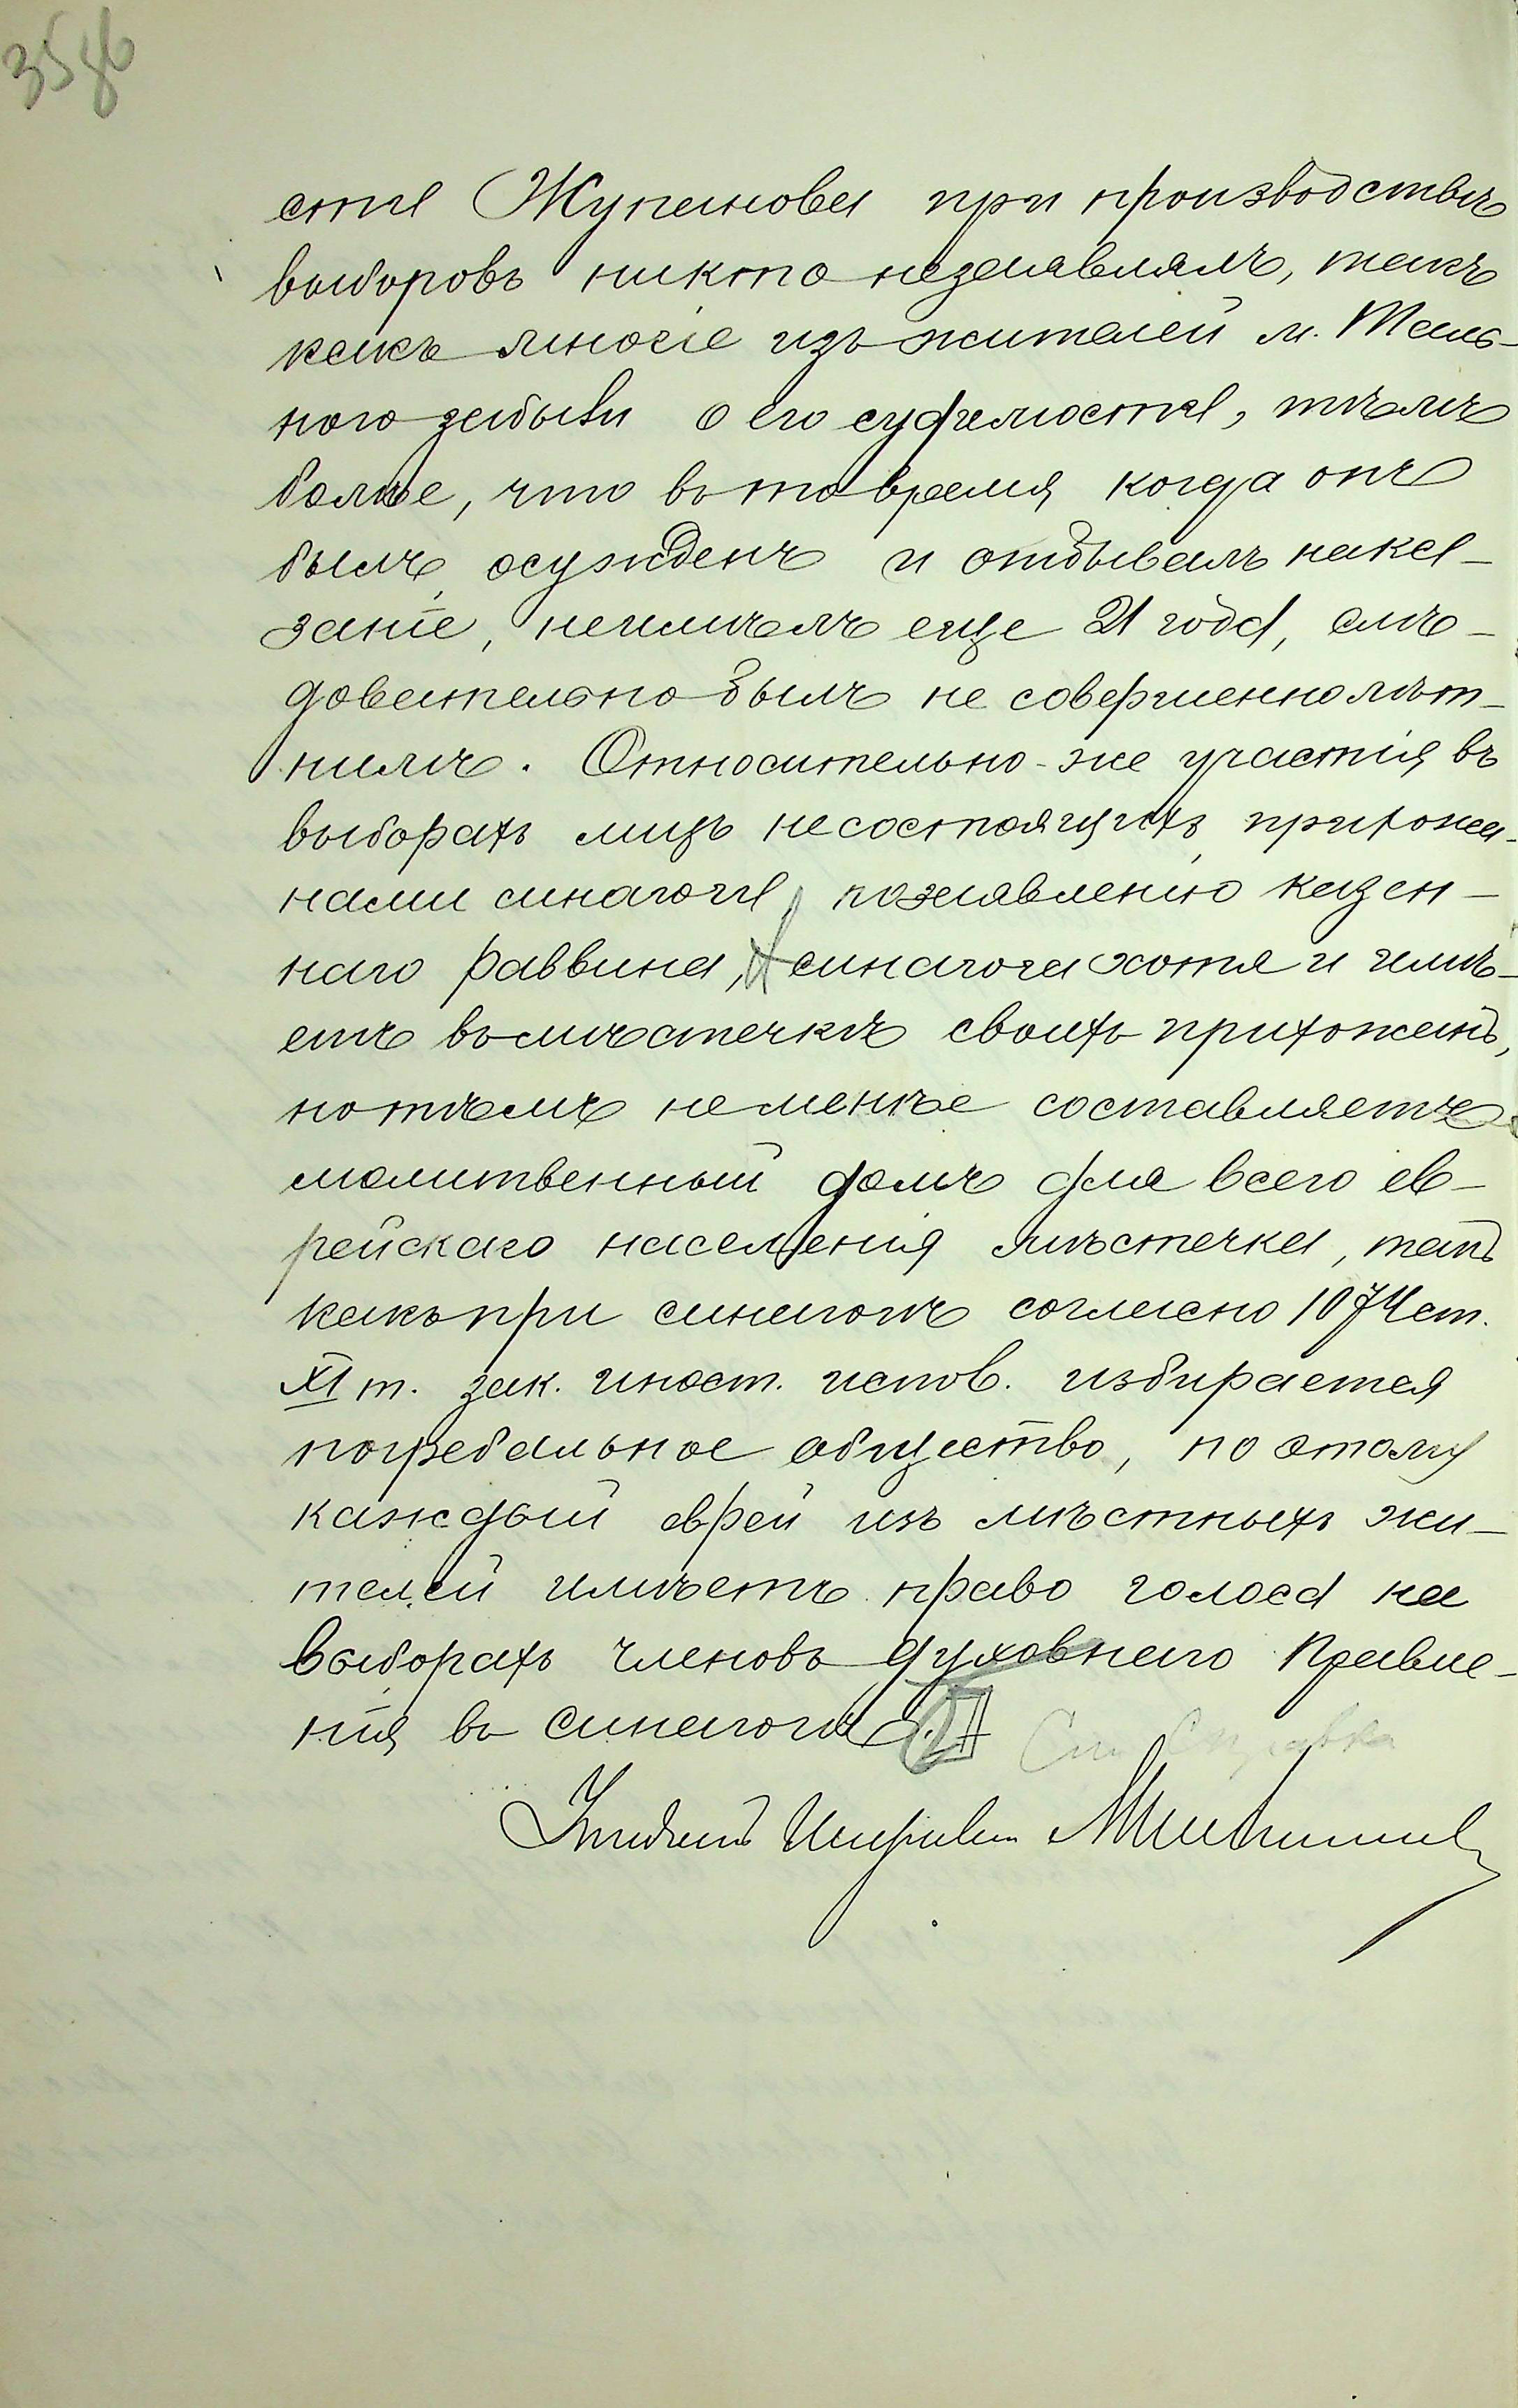 35об
сти Жупанова при производствѣ
выборовъ никто незаявлялъ, такъ
какъ многіе изъ жителей м. Таль-
ного забыли о его судимости, тѣмъ
болѣе, что въ то время когда онъ
былъ осужденъ и отбывалъ нака-
заніе, неимѣлъ еще 21 года, слѣ-
довательно былъ не совершеннолѣт-
нимъ. Относительно-же участія въ
выборахъ лицъ несостоящихъ прихожа-
нами синагоги, позаявленію казен-
наго раввина, синагога хотя и имѣ-
етъ въ мѣстечкѣ своихъ прихожанъ,
но тѣмъ неменѣе составляетъ
молитвенный домъ для всего ев-
рейскаго населенія мѣстечка, такъ
какъ при синагогѣ согласно 1074 ст.
XI т. зак. иност. испов. избирается
погребальное общество, по этому
каждый еврей изъ мѣстныхъ жи-
телей имѣетъ право голоса на
выборахъ членовъ духовнаго Правле-
нія въ синагоги.
Справка